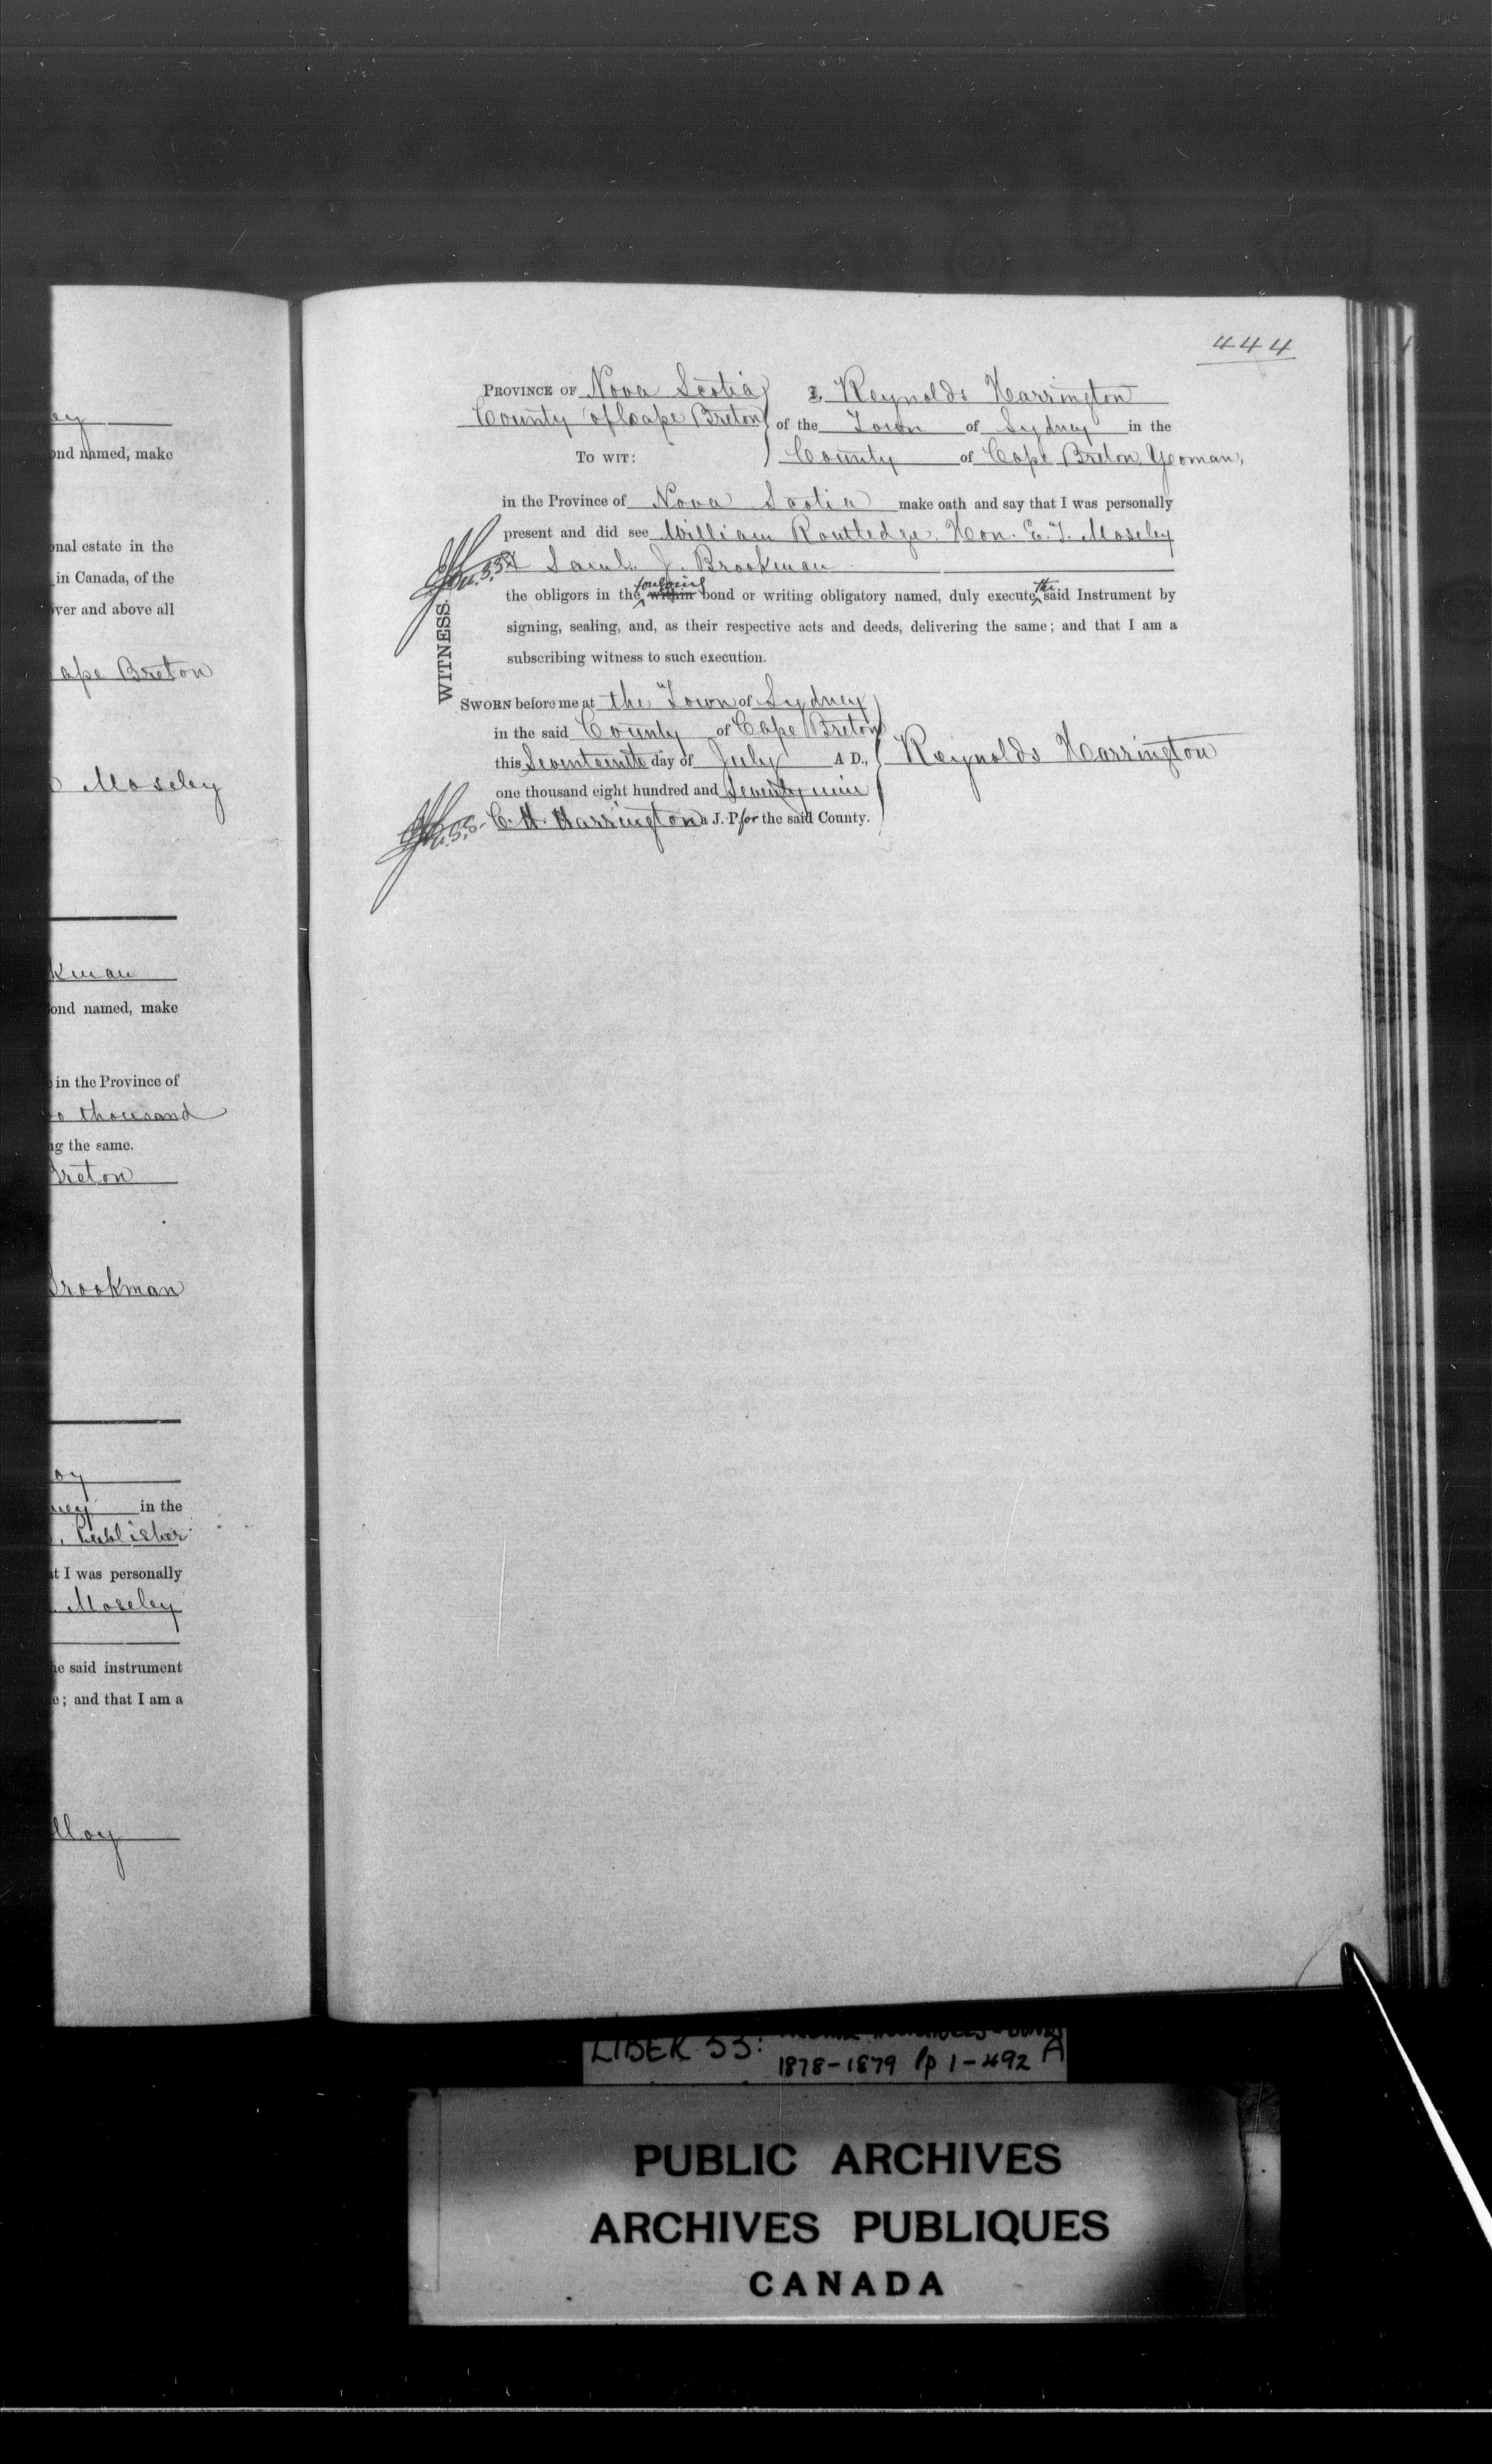 ey
ond named, make
onal estate in the
in Canada, of the
over and above all
ape Breton
Moseley
kman
ond named, make
in the Province of
thousand
ng the same.
Breton
Brookman
oy
ney in the
, Publisher
t I was personally
. Moseley
he said instrument
e; and that I am a
lloy
444
PROVINCE OF Nova Scotia
County of Cape Breton
TO WIT:
I, Reynolds Harrington
of the Town of Sydney in the
County of Cape Breton, Yeoman,
in the Province of Nova Scotia make oath and say that I was personally
present and did see William Routledge. Hon. E. T. Moseley
& Saml. J. Brookman
the obligors in the foregoing within bond or writing obligatory named, duly execute the said Instrument by
signing, sealing, and, as their respective acts and deeds, delivering the same; and that I am a
subscribing witness to such execution.
WITNESS.
SWORN before me at the Town of Sydney
in the said County of Cape Breton
this Seventeenth day of July A D.,
one thousand eight hundred and Seventy nine
C. H. Harrington a J. P. for the said County.
Reynolds Harrington
LIBER 33:
1878-1879 pp 1-492 A
PUBLIC ARCHIVES
ARCHIVES PUBLIQUES
CANADA